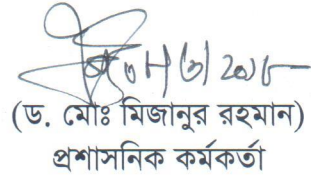 (ড. মোঃ মিজানুর রহমান)
প্রশাসনিক কর্মকর্তা